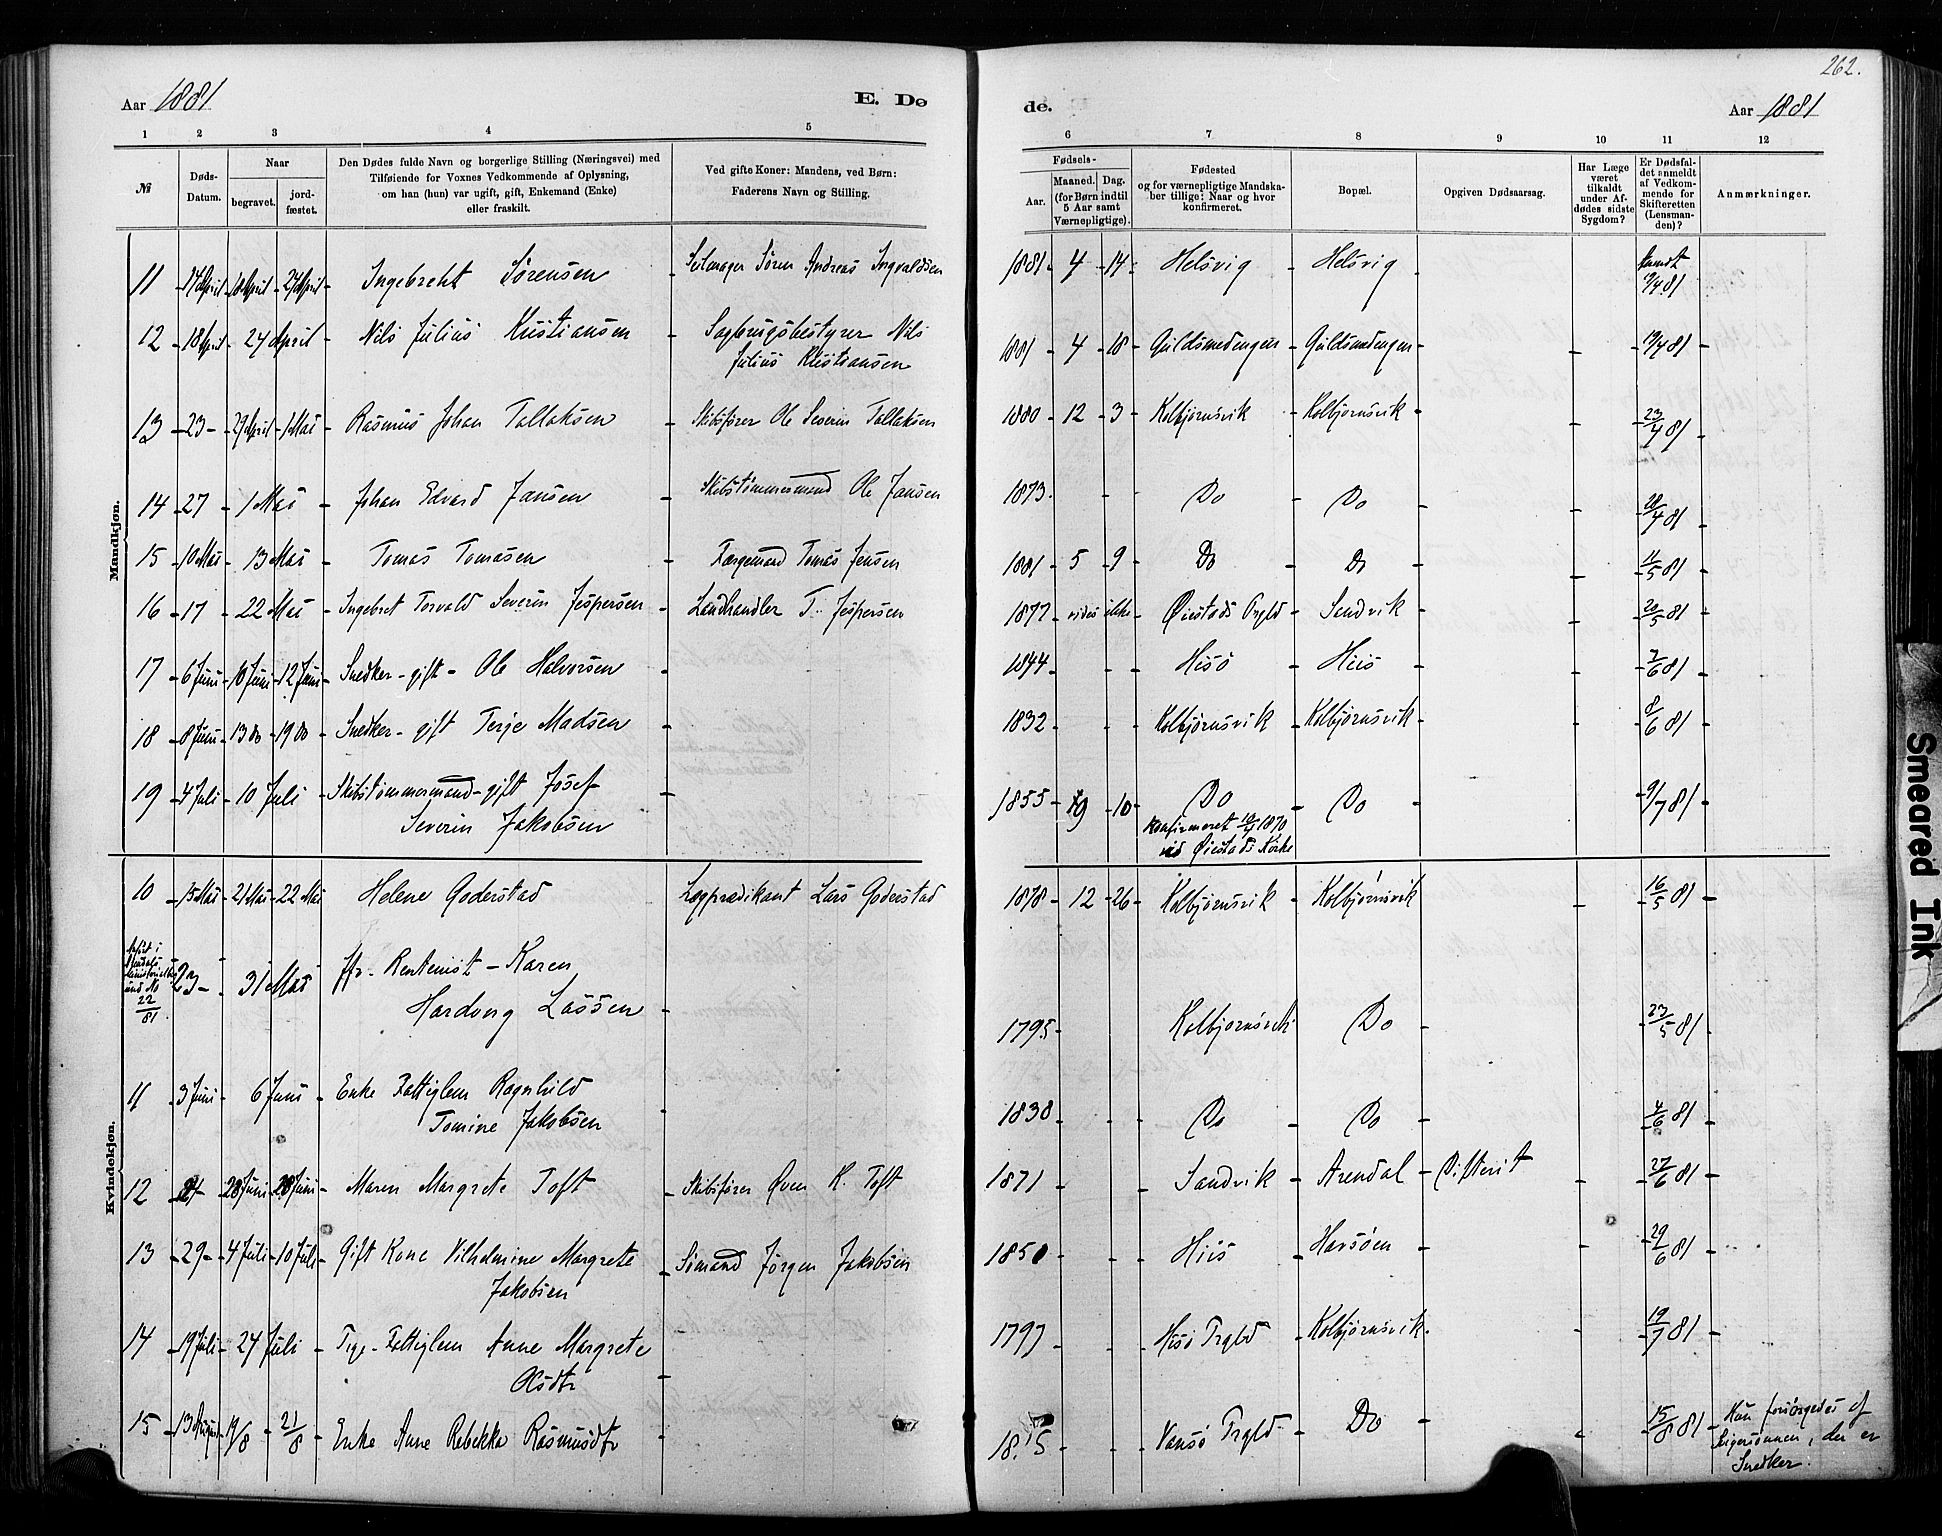 262.
Aar 1881 E. Dø de. Aar 1881
1 2 3 4 5 6 7 8 9 10 11 12
№
Døds-Datum.
Naar
begravet.
jord-fæstet.
Den Dødes fulde Navn og borgerlige Stilling (Næringsvei) med
Tilføiende for Voxnes Vedkommende af Oplysning,
om han (hun) var ugift, gift, Enkemand (Enke)
eller fraskilt.
Ved gifte Koner: Mandens, ved Børn:
Faderens Navn og Stilling.
Fødsels-
Aar.
Maaned. Dag.
(for Børn indtil
5 Aar samt
Værnepligtige).
Fødested
og for værnepligtige Mandska-
ber tillige: Naar og hvor
konfirmeret.
Bopæl.
Opgiven Dødsaarsag.
Har Læge
været
tilkaldt
under Af-
dødes sidste
Sygdom?
Er Dødsfal-
det anmeldt
af Vedkom-
mende for
Skifteretten
(Lensman-
den)?
Anmærkninger.
Mandkjøn.
11 14 April 18 April 24 April Ingebreht Sørensen Søren Andreas Ingvaldsen 1881 4 14 Helsvig Helsvig
12 18 April 24 April Nils Julius Kristiansen Sagbrugsbestyrer Nils
Julius Kristiansen 1881 4 18 Guldsmedengen Guldsmedengen 19/4 81
13 23 29 April 1 Mai Rasmus Johan Tallaksen Skibsfører Ole Severin Tallaksen 1880 12 3 Kolbjørnsvik Kolbjørnsvik 23/4 81
14 27 1 Mai Johan Edvard Jansen Skibstømmermand Ole Jansen 1873 Do Do 28/4 81
15 10 Mai 13 Mai Tomas Tomasen Færgemand Tomas Jensen 1881 5 9 Do Do 11/5 81
16 17 22 Mai Ingebret Torvald Severin Jespersen Landhandler T. Jespersen 1877 vides ikke Øiestads Prgld Sandvik 20/5 81
17 6 Juni 10 Juni 12 Juni Snedker - gift - Ole Halvorsen 1844 Hisø Hiis 7/6 81
18 8 Juni 13 Do 19 Do Snedker - gift Terje Madsen 1832 Kolbjørnsvik Kolbjørnsvik 8/6 81
19 4 Juli 10 Juli Skibstømmermand - gift Josef
Severin Jakobsen 1855 9 10 Do Do 9/7 81
Konfirmeret 1870
ved Øiestads Kirke
Kvindekjøn.
10 15 Mai 21 Mai 22 Mai Helene Goderstad Lægprædikant Lars Goderstad 1878 12 26 Kolbjørnsvik Kolbjørnsvik 16/5 81
und No
22/81
23 31 Mai Rentenist - Karen
Hardvig Lassen 1795 Kolbjørnsvik Do 23/5 81
11 3 Juni 6 Juni Enke Fattiglem Ragnhild
Tomine Jakobsen 1838 Do Do 4/6 81
12 28 Juni 28 Juni Maren Margrete Toft Skibsfører Øven K. Toft 1871 Sandvik Arendal Difterit 27/6 81
13 29 4 Juli 10 Juli Gift Kone Vilhelmine Margrete
Jakobsen Sømand Jørgen Jakobsen 1850 Hiis Havsøen 29/6 81
14 19 Juli 24 Juli Fattiglem Anne Margrete
Olsdtr 1797 Hisø Prgld Kolbjørnsvik 19/7 81
15 13 August 19/8 21/8 Enke Anne Rebekka Rasmusdtr Prgld Do 15/8 81 Hun forsørgedes af
, der er
Snedker.
Smeared Ink